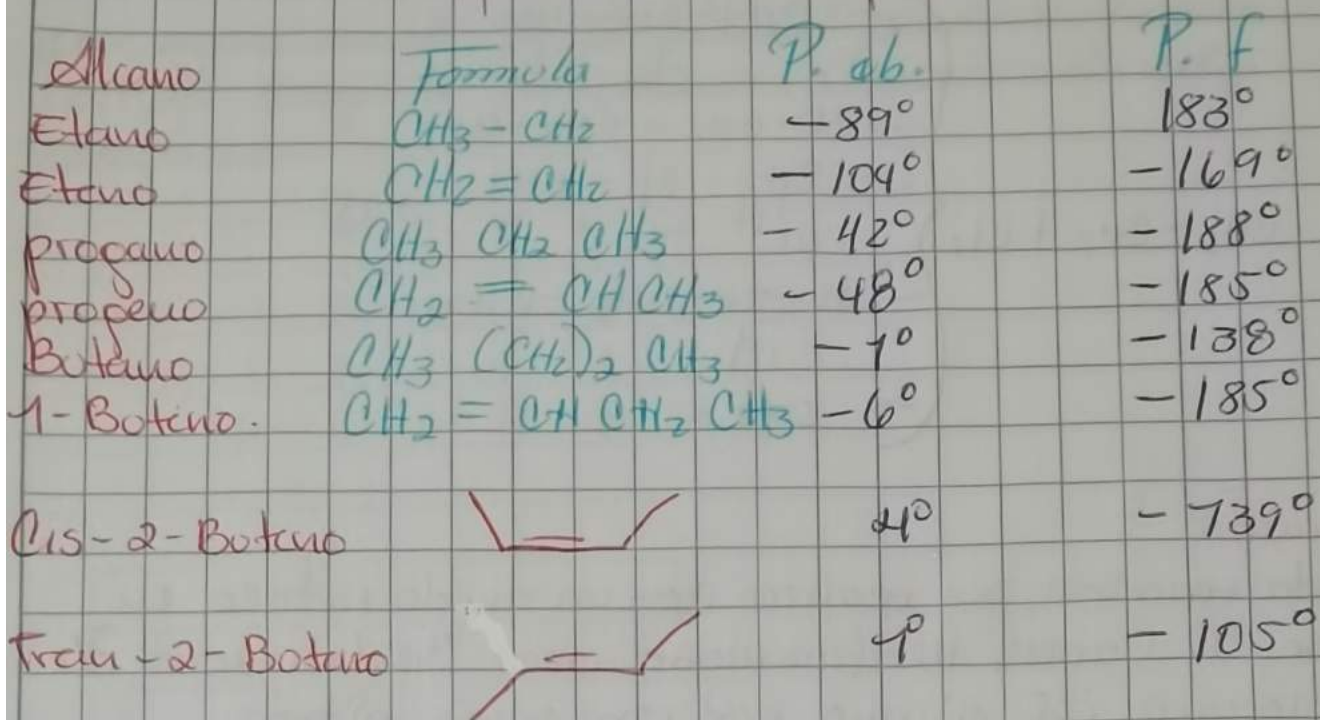 Alcano Formula P. eb. P. f
Etano CH3 - CH2 -89° 183°
Eteno CH2 = CH2 -104° -169°
propano CH3 CH2 CH3 - 42° -188°
propeno CH2 = CH CH3 - 48° -185°
Butano CH3 (CH2)2 CH3 -1° -138°
1-Boteno. CH2 = CH CH2 CH3 -6° -185°
Cis-2-Boteno 4° -139°
Tran-2-Boteno 1° -105°